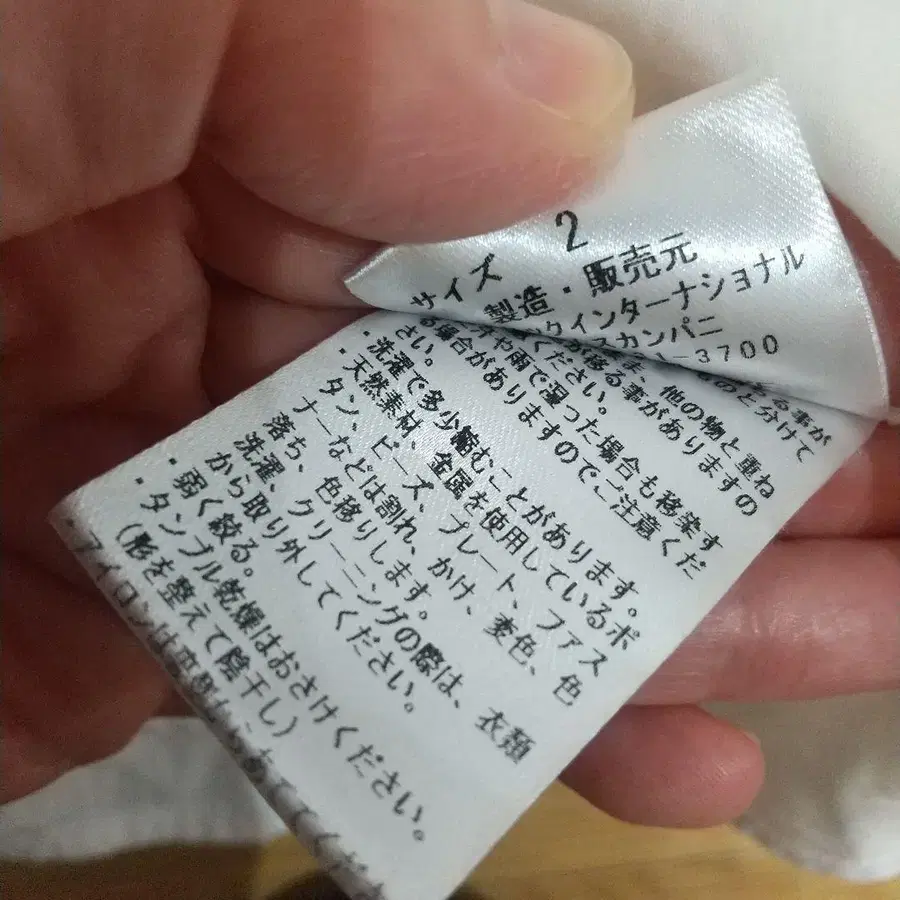 サイズ 2
製造・販売元
クインターナショナル
スカンパニ
1-3700
る事が
のと分けて
ま、他の物と重ね
移る事がありますの
ください。
や雨で湿った場合も移染す
る場合がありますのでご注意くだ
さい。
・洗濯で多少縮むことがあります。
・天然素材、金属を使用しているボ
タン、ビーズ、プレート、ファス
ナーなどは割れ、かけ、変色、色
落ち、色移りします。
洗濯、クリーニングの際は、衣類
から取り外してください。
・弱く絞る。
・タンブル乾燥はおさけください。
(形を整えて陰干し)
・アイロンは
あててくださ